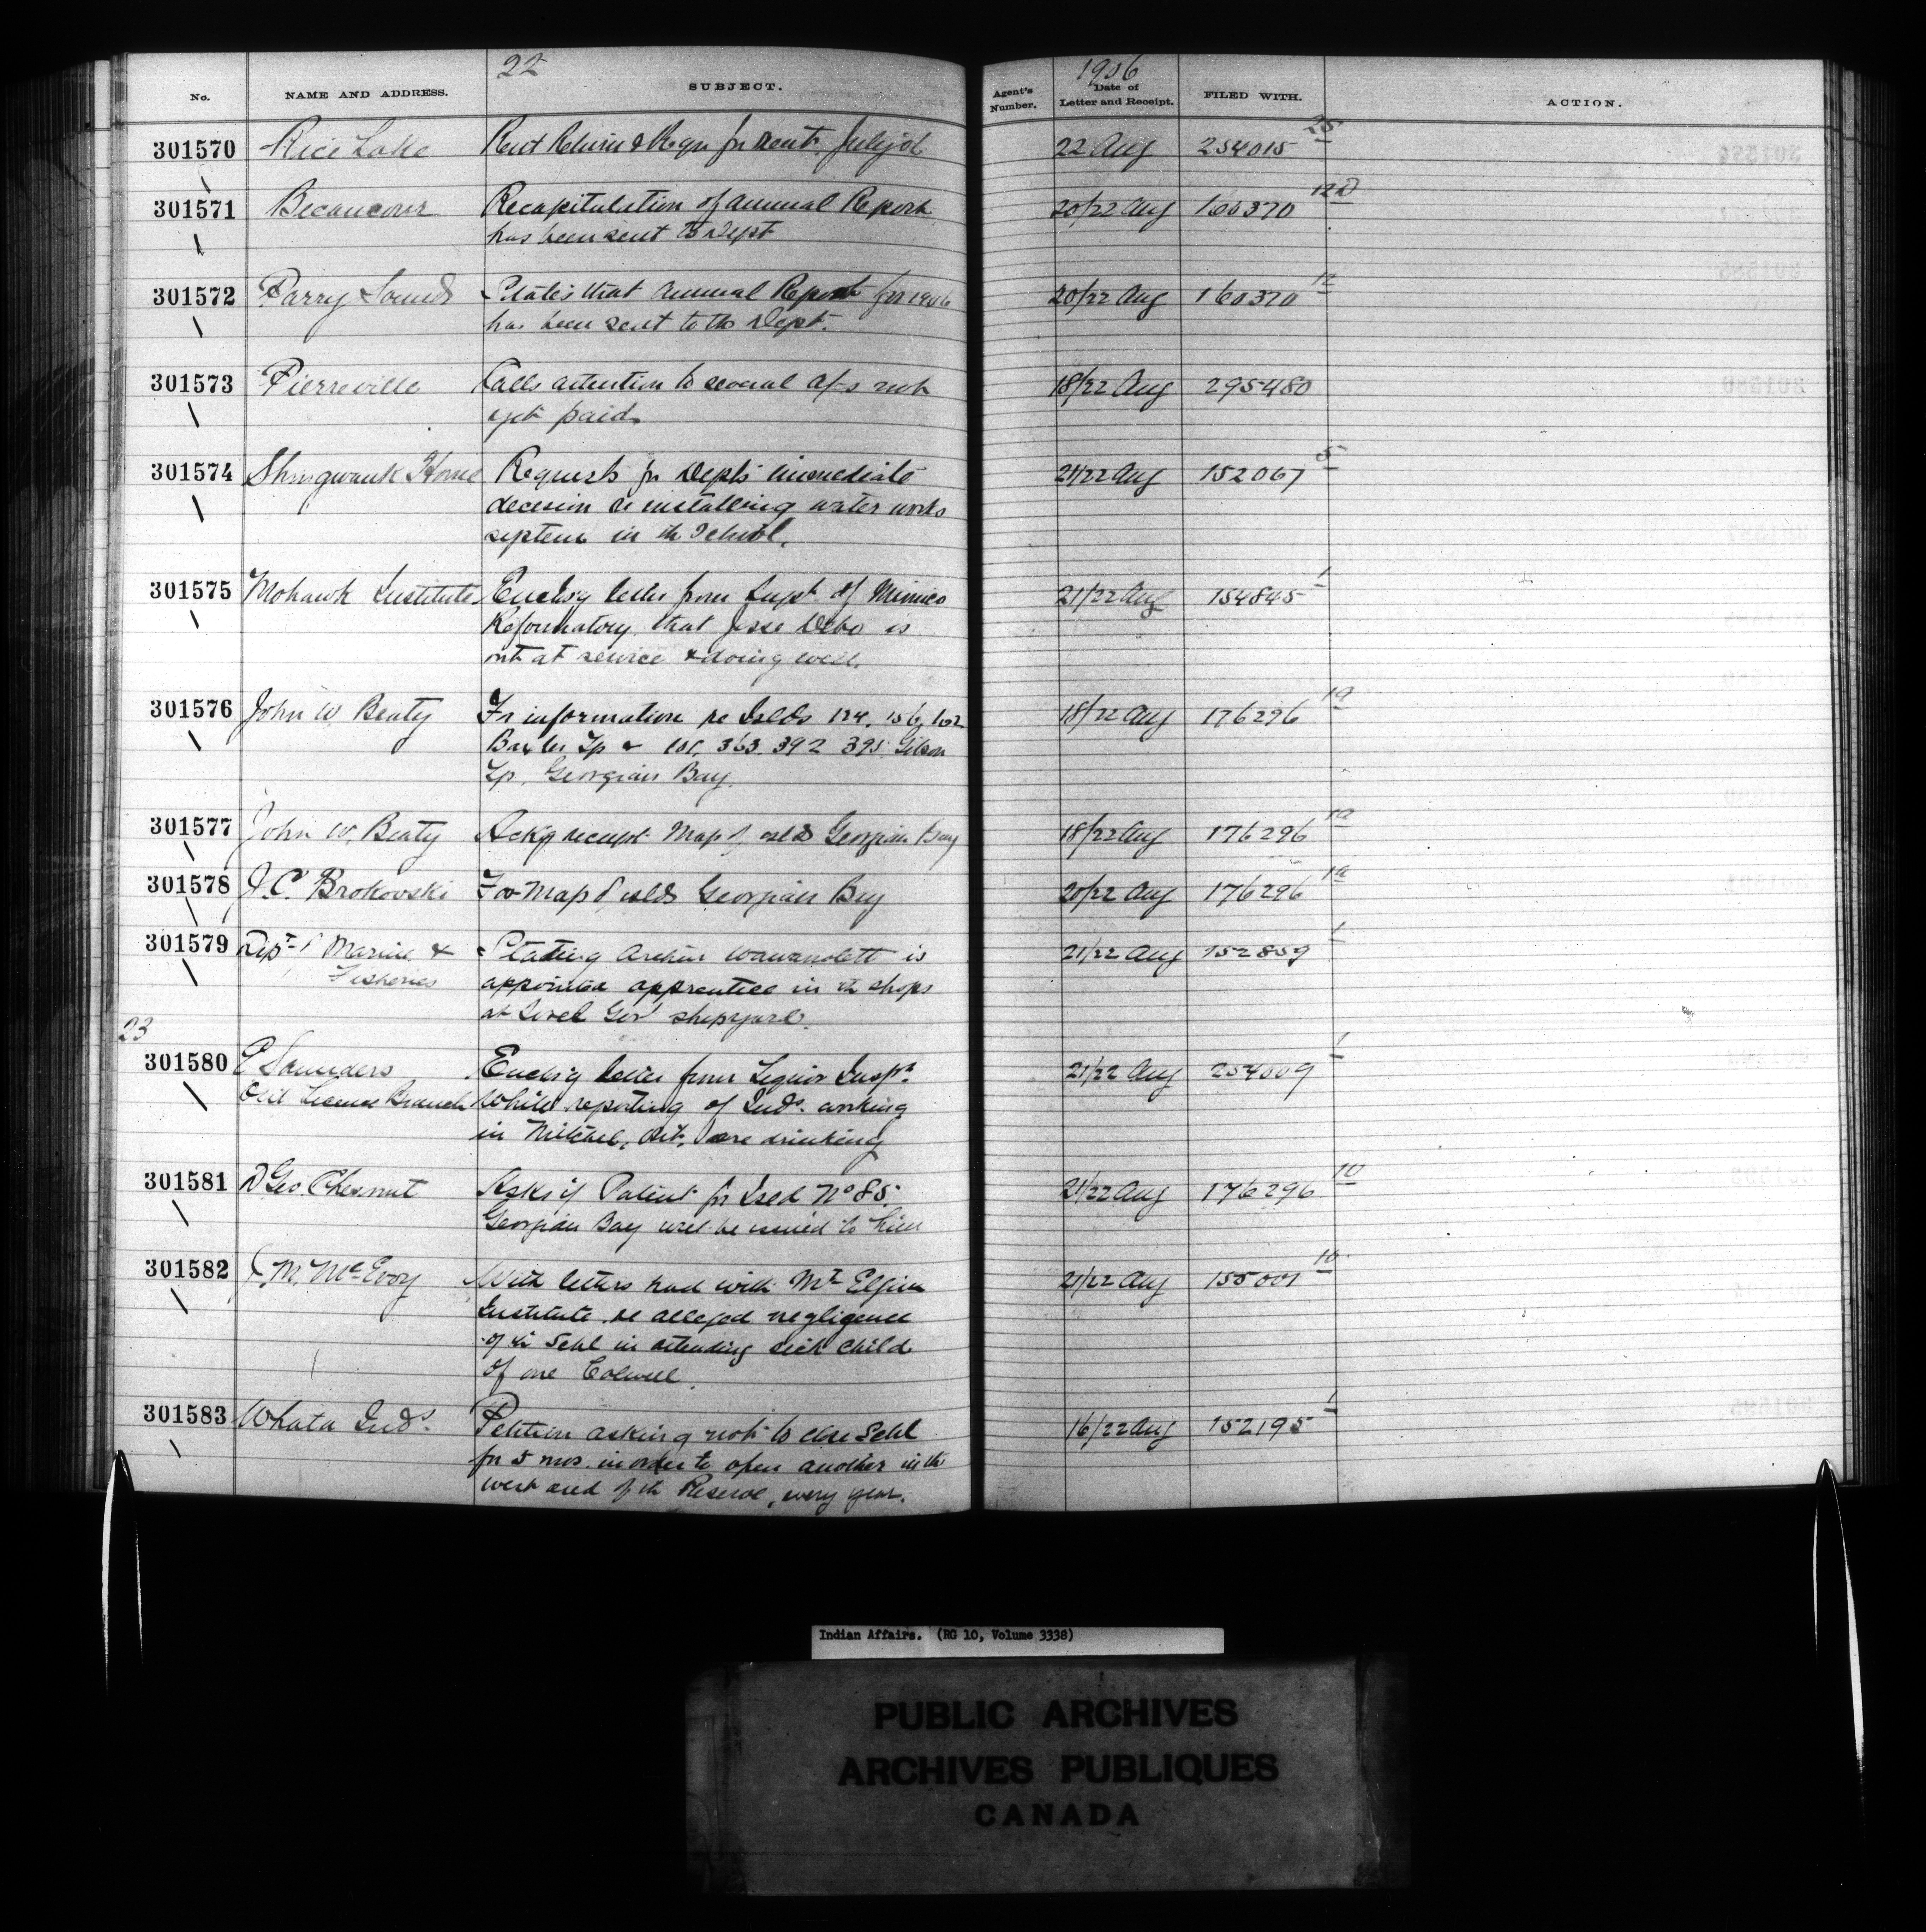 22
1906
No. NAME AND ADDRESS. SUBJECT. Agent's Number. Date of Letter and Receipt. FILED WITH. ACTION.
301570 Rice Lake Rent Return & Requ for rent 22 Aug 254015
301571 Becancour Recapitulation of annual Report 20/22 Aug 160370
has been sent to Dept
301572 Parry Sound States that Annual Report for 1906 20/22 Aug 160370 12
has been sent to the Dept.
301573 Pierreville Calls attention to several a/cs not 18/22 Aug 295480
yet paid
301574 Shingwauk Home Requests for Dept's immediate 21/22 Aug 152067 5
decision re installing water works
system in the School.
301575 Mohawk Institute Enclosg letter from Supt. of Mimico 21/22 Aug 154845 1
Reformatory that Jesse Debo is
out at service & doing well.
301576 John W. Beaty Fr information re Islds 124, 156, 162 18/22 Aug 176296 10
Baxter Tp & 363. 392 395 Gibson
Tp. Georgian Bay.
301577 John W. Beaty Ackg receipt Map of islds Georgian Bay 18/22 Aug 176296 10
301578 J. C. Brokovski For Map of islds Georgian Bay 20/22 Aug 176296 10
301579 Dept of Marine & Stating Arthur Wawanolett is 21/22 Aug 152859 1
Fisheries appointed apprentice in the shops
at Sorel Gov' shipyard.
23
301580 E Saunders Enclos'g letter from Liquor Inspr. 21/22 Aug 254009 1
License Branch White reporting of Inds. working
in Mitchel, Ont. are drinking
301581 D Geo Chesnut Asks if Patent for Isld No 85 21/22 Aug 176296 10
Georgian Bay will be issued to him
301582 J. M. McEvoy With letters had with Mt Elgin 21/22 Aug 155001 10
Institute re alleged negligence
of the Schl in attending sick child
of one Colwell.
301583 Whata Inds. Petition asking not to close Schl 16/22 Aug 152195 1
for 5 mos. in order to open another in the
west end of the Reserve, every year.
Indian Affairs. (RG 10, Volume 3338)
PUBLIC ARCHIVES
ARCHIVES PUBLIQUES
CANADA